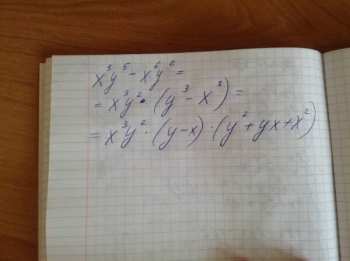 x³y⁵ - x⁶y² =
= x³y² · (y³ - x³) =
= x³y² · (y-x) · (y² + yx + x²)